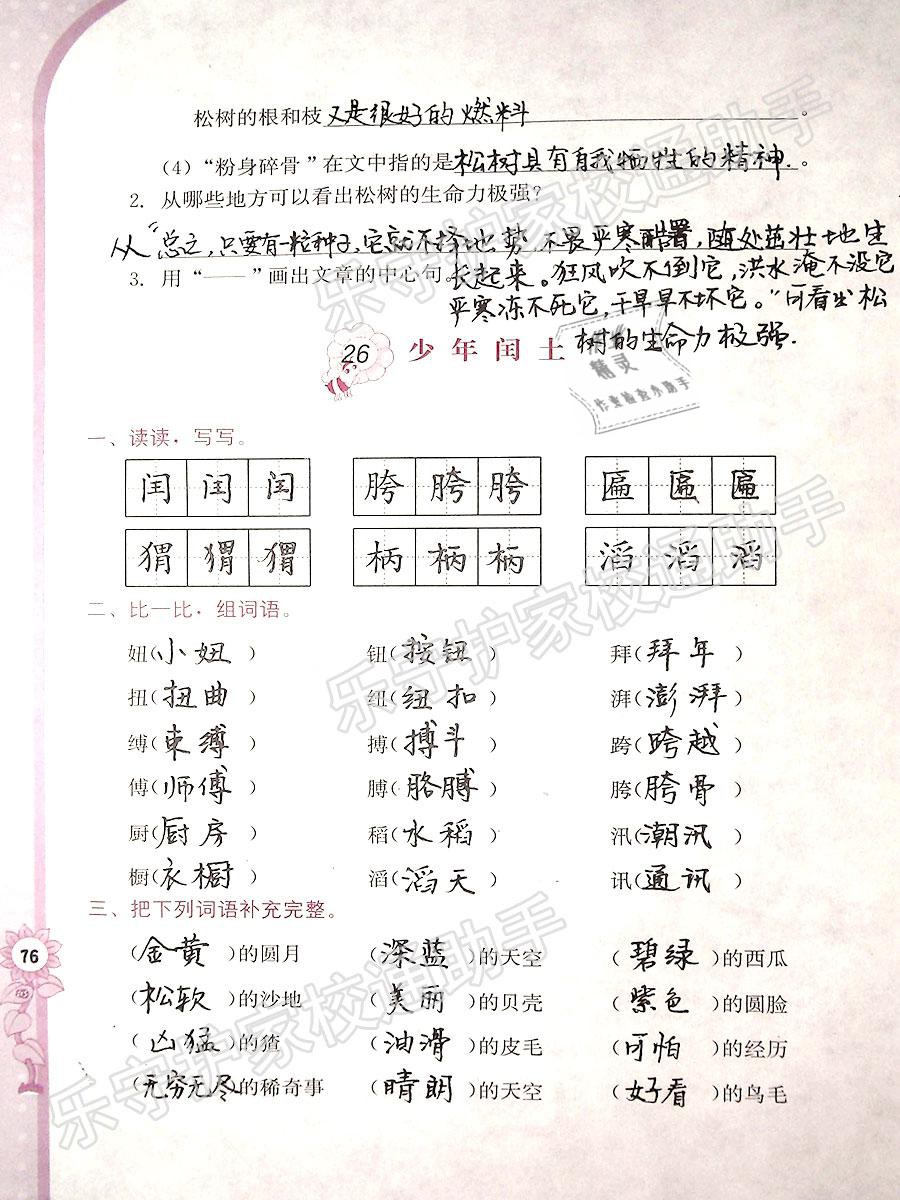 松树的根和枝又是很好的燃料。
(4)“粉身碎骨”在文中指的是松树具有自我牺牲的精神.。
2. 从哪些地方可以看出松树的生命力极强?
从“总之,只要有一粒种子,它就不择地势,不畏严寒酷署,随处茁壮地生
长起来。狂风吹不倒它,洪水淹不没它
严寒冻不死它,干旱旱不坏它。”可看出松
树的生命力极强.
3. 用“——”画出文章的中心句。
26 少年闰土
一、读读,写写。
闰 闰 闰 胯 胯 胯 匾 匾 匾
猬 猬 猬 柄 柄 柄 滔 滔 滔
二、比一比,组词语。
妞(小妞) 钮(按钮) 拜(拜年)
扭(扭曲) 纽(纽扣) 湃(澎湃)
缚(束缚) 搏(搏斗) 跨(跨越)
傅(师傅) 膊(胳膊) 胯(胯骨)
厨(厨房) 稻(水稻) 汛(潮汛)
橱(衣橱) 滔(滔天) 讯(通讯)
三、把下列词语补充完整。
(金黄)的圆月 (深蓝)的天空 (碧绿)的西瓜
(松软)的沙地 (美丽)的贝壳 (紫色)的圆脸
(凶猛)的猹 (油滑)的皮毛 (可怕)的经历
(无穷无尽)的稀奇事 (晴朗)的天空 (好看)的鸟毛
76
乐守护家校通助手
乐守护家校通助手
乐守护家校通助手
精灵
作业检查小助手